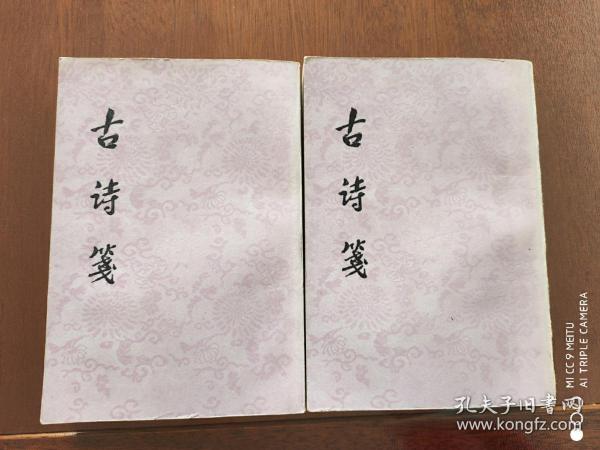 古诗笺
古诗笺
MI CC9 MEITU
AI TRIPLE CAMERA
孔夫子旧书网
www.kongfz.com